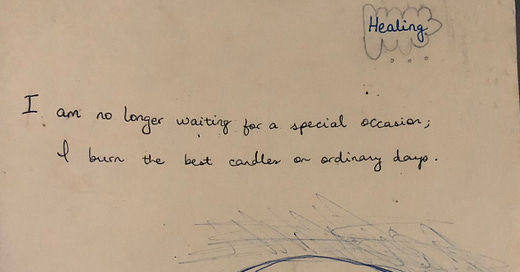 Healing
...
I am no longer waiting for a special occasion;
I burn the best candles on ordinary days.